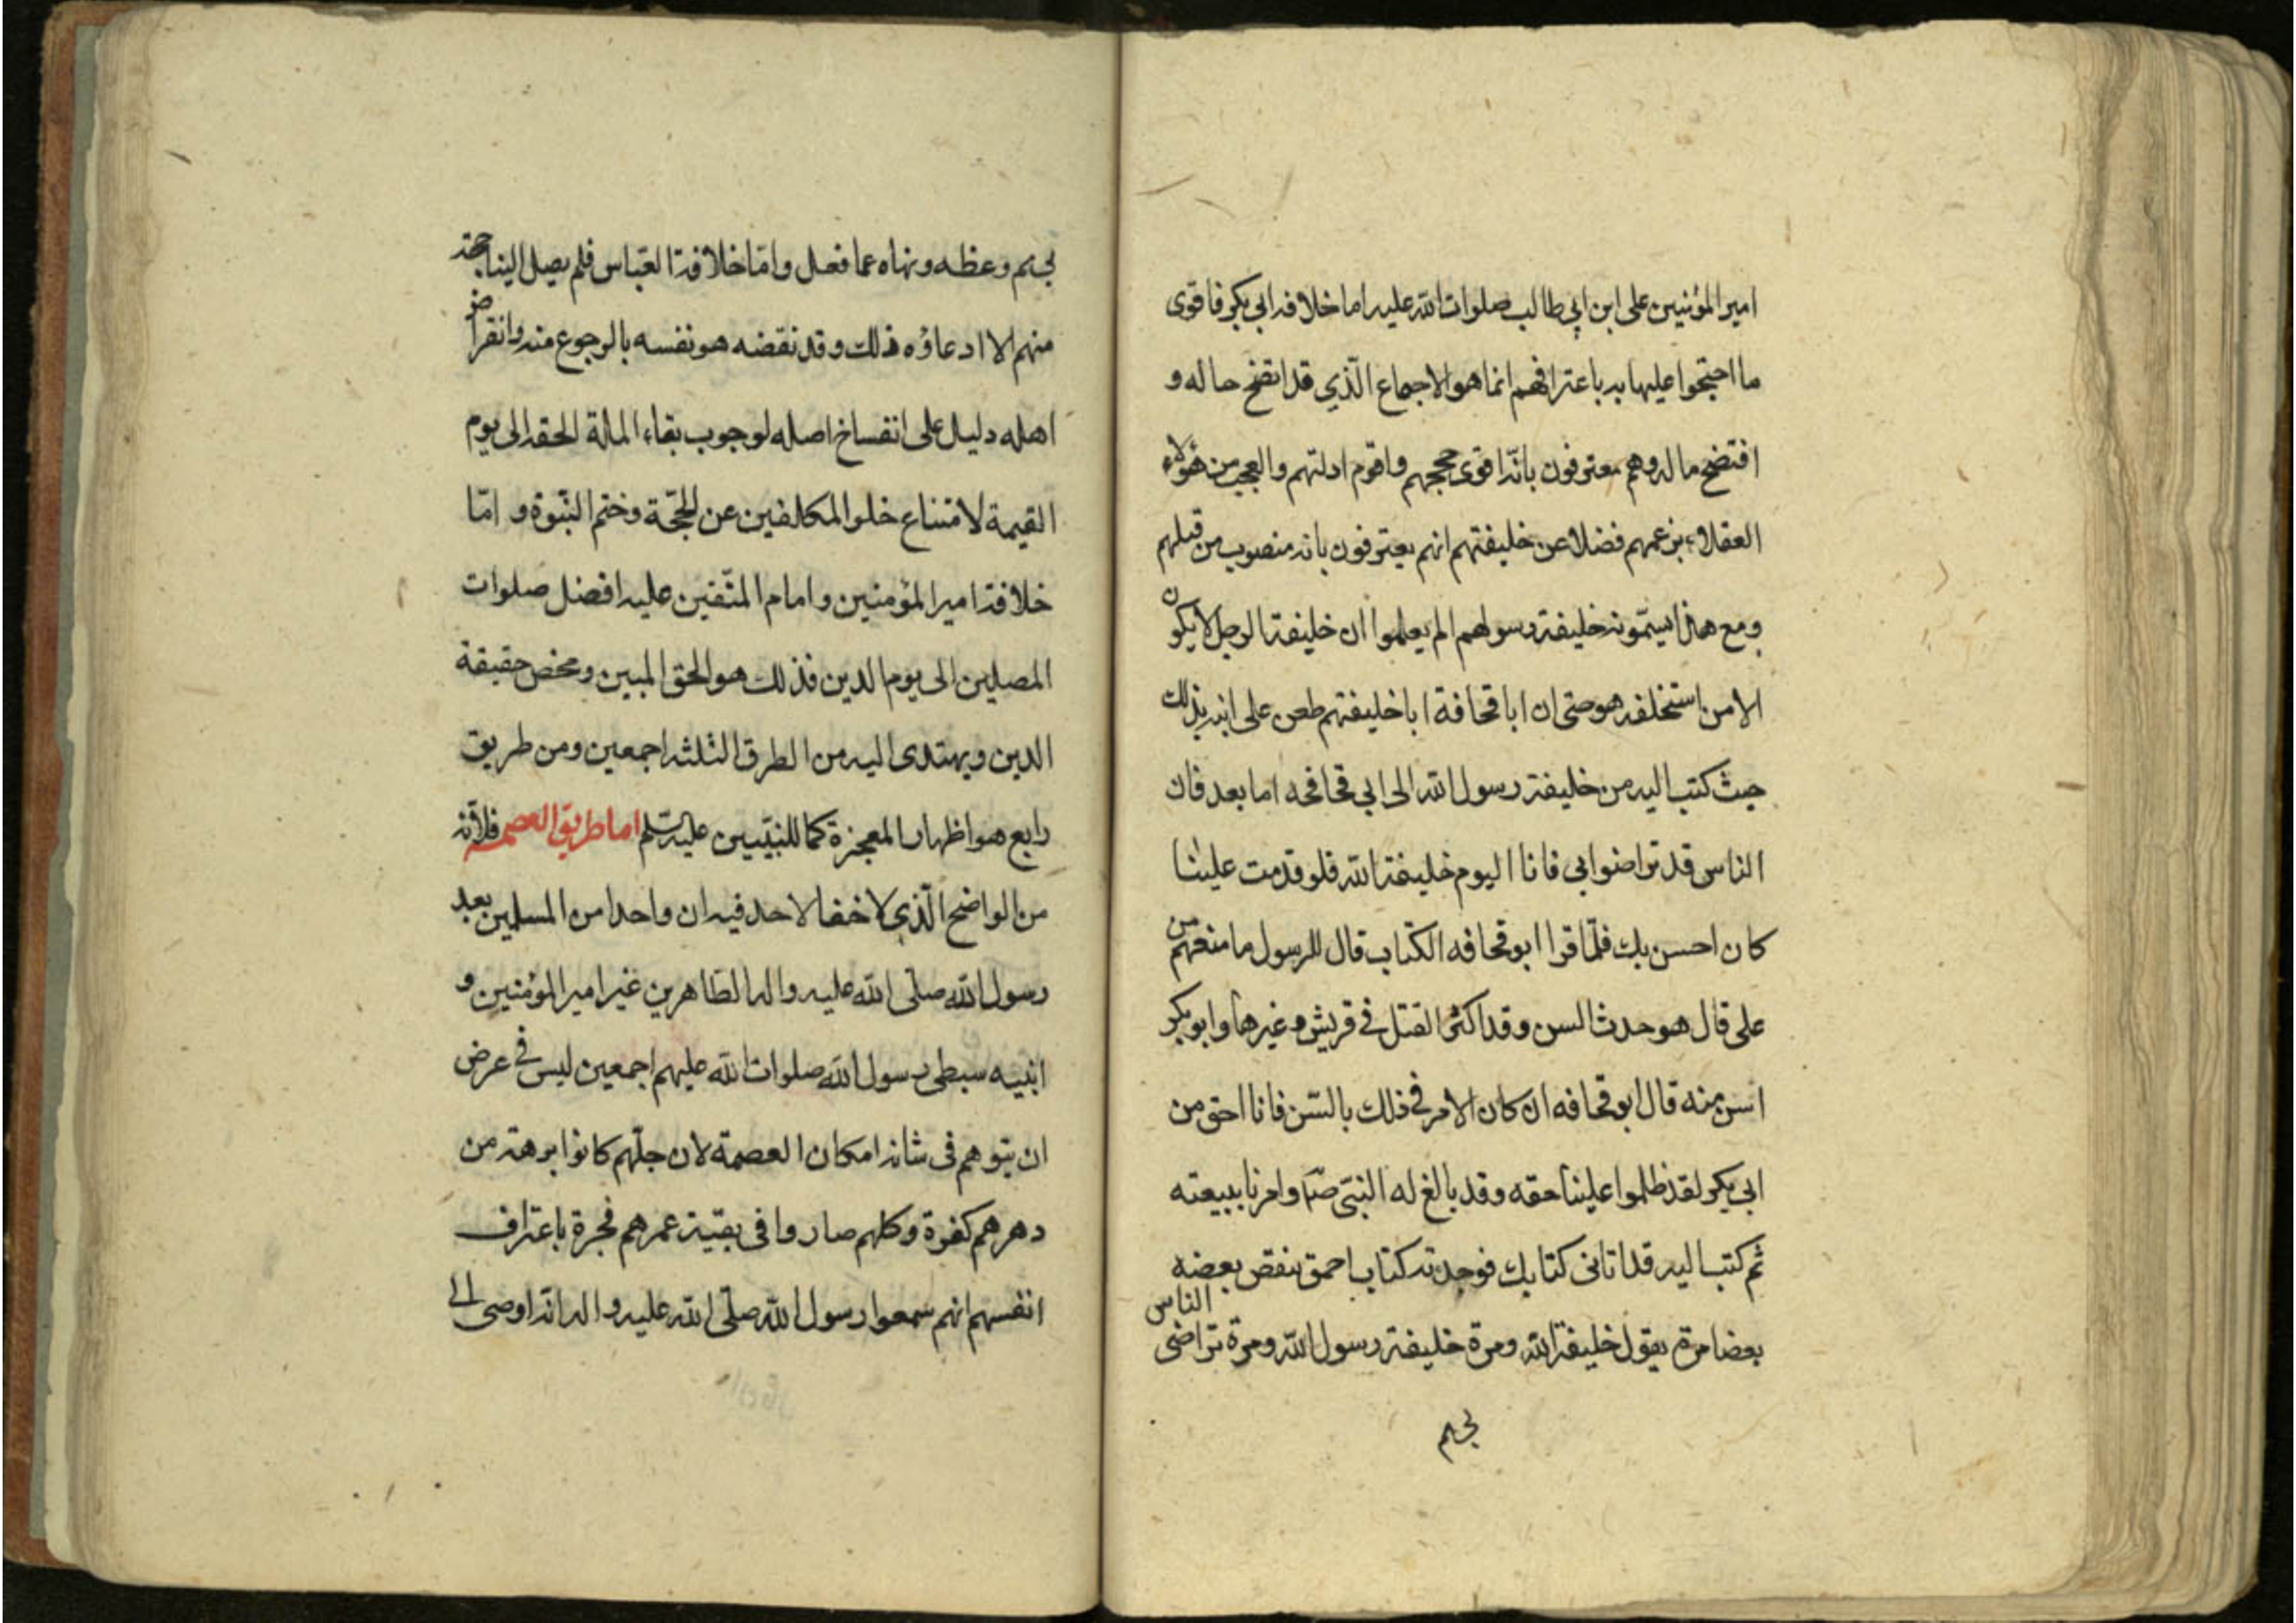 امير المؤمنين على ابن ابي طالب صلوات الله عليه اما خلافة ابي بكر فاقوى
ما احتجوا عليها به باعترافهم انما هو الاجماع الّذي قد اتضح حاله و
افتضح ماله وهم معترفون بانّه اقوى حججهم واقوم ادلتهم والعجب من هؤلاء
العقلاء بزعمهم فضلا عن خليفتهم انهم يعترفون بانه منصوب من قبلهم
ومع هذا يسمّونه خليفة رسولهم الم يعلموا ان خليفة الرجل لا يكون
الا من استخلفه هو حتى ان ابا قحافة ابا خليفتهم طعن على ابنه بذلك
حيث كتب اليه من خليفة رسول الله الى ابي قحافحه اما بعد فان
الناس قد تراضوا بي فانا اليوم خليفة الله فلو قدمت علينا
كان احسن بك فلمّا قرا ابو قحافه الكتاب قال للرسول ما منعهم من
على قال هو حدث السن وقد اكثر القتل في قريش وغيرها وابو بكر
اسن منه قال ابو قحافه ان كان الامر في ذلك بالسّن فانا احق من
ابي بكر لقد ظلموا علينا حقه وقد بالغ له النبيّ صّ وامرنا ببيعته
ثم كتب اليه قد اتانى كتابك فوجدته كتاب احمق ينقض بعضه
بعضا مرة يقول خليفة الله ومرة خليفة رسول الله ومرة تراضى الناس
لجهم
لجهم وعظه ونهاه عما فعل وامّا خلافة العبّاس فلم يصل الينا حجة
منهم الا ادعاؤه ذلك وقد نقضه هو نفسه بالرجوع منه وانقراض
اهله دليل على انفساخ اصله لوجوب بقاء الملة الحقة الى يوم
القيمة لامتناع خلو المكلفين عن الحجّة وختم النّبوة و امّا
خلافة امير المؤمنين وامام المتّقين عليه افضل صلوات
المصلين الى يوم الدين فذلك هو الحق المبين ومحض حقيقة
الدين ويهتدى اليه من الطرق الثلثه اجمعين ومن طريق
رابع هو اظهار المعجزة كما للنبيّين عليه سلم اما طريق العصمة فلأنه
من الواضح الّذي لا خفا لاحد فيه ان واحدا من المسلمين بعد
رسول الله صلّى الله عليه واله الطاهرين غير امير المؤمنين و
ابنيه سبطى رسول الله صلوات الله عليهم اجمعين ليس في عرض
ان يتوهم فى شانه امكان العصمة لان جلّهم كانوا برهة من
دهرهم كفرة وكلهم صاروا فى بقية عمرهم فجرة باعتراف
انفسهم انهم سمعوا رسول الله صلّى الله عليه واله انّه اوصى الى